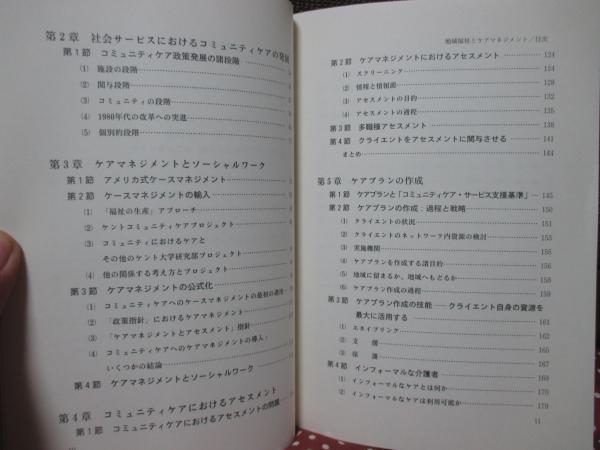 第2章 社会サービスにおけるコミュニティケアの発展
第1節 コミュニティケア政策発展の諸段階
⑴ 施設の段階
⑵ 関与段階
⑶ コミュニティの段階
⑷ 1980年代の改革への突進
⑸ 個別的段階
第3章 ケアマネジメントとソーシャルワーク
第1節 アメリカ式ケースマネジメント
第2節 ケースマネジメントの輸入
⑴ 「福祉の生産」アプローチ
⑵ ケントコミュニティケアプロジェクト
⑶ コミュニティにおけるケアと
その他のケント大学研究部プロジェクト
⑷ 他の関係する考え方とプロジェクト
第3節 ケアマネジメントの公式化
⑴ コミュニティケアへのケースマネジメントの最初の適用
⑵ 「政策指針」におけるケアマネジメント
⑶ 「ケアマネジメントとアセスメント」指針
⑷ コミュニティケアへのケアマネジメントの導入：
いくつかの結論
第4節 ケアマネジメントとソーシャルワーク
第4章 コミュニティケアにおけるアセスメント
第1節 コミュニティケアにおけるアセスメントの問題
地域福祉とケアマネジメント／目次
第2節 ケアマネジメントにおけるアセスメント 124
⑴ スクリーニング 124
⑵ 情報と情報源 132
⑶ アセスメントの目的 135
⑷ アセスメントの過程 135
第3節 多職種アセスメント 138
第4節 クライエントをアセスメントに関与させる 141
まとめ 144
第5章 ケアプランの作成
第1節 ケアプランと「コミュニティケア・サービス支援基準」 145
第2節 ケアプランの作成：過程と戦略 150
⑴ クライエントの状況 150
⑵ クライエントのネットワーク内資源の検討 151
⑶ 実施機関 155
⑷ ケアプランを作成する諸目的 156
⑸ 地域に留まるか、地域へもどるか 158
⑹ ケアプラン作成の過程 159
第3節 ケアプラン作成の技能──クライエント自身の資源を
最大に活用する 161
⑴ エネイブリング 161
⑵ 支援 165
⑶ 保護 167
第4節 インフォーマルな介護者 169
⑴ インフォーマルなケアとは何か 170
⑵ インフォーマルなケアは利用可能か 170
11